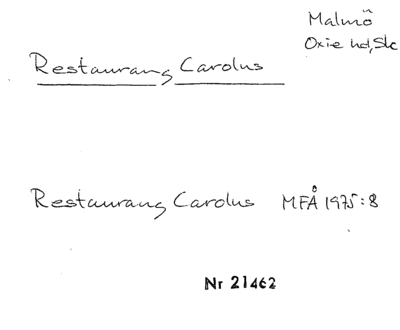 Malmö
Oxie hd, Sk
Restaurang Carolus
Restaurang Carolus MFÅ 1975:8
Nr 21462